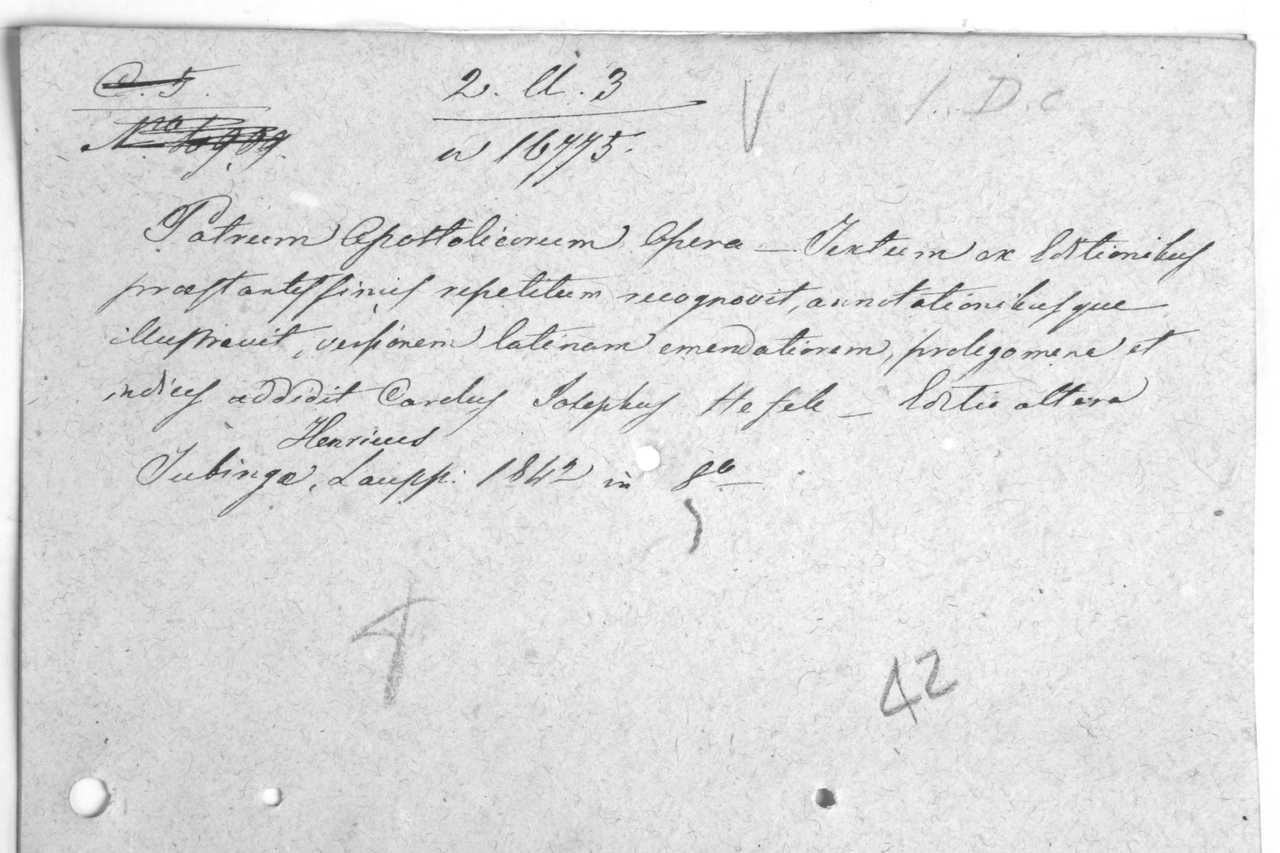 C. 5. 2. U. 3 V 1. D. c
Nro 6969. n 16775.
Patrum Apostolicorum Opera — Textum ex Editionibus
præstantissimis repetitum recognovit, annotationibusque
illustravit, versionem latinam emendatiorem, prolegomena et
indices addidit Carolus Josephus Hefele — Editio altera
Henricus
Tubingæ, Laupp: 1842 in 8o
4
42